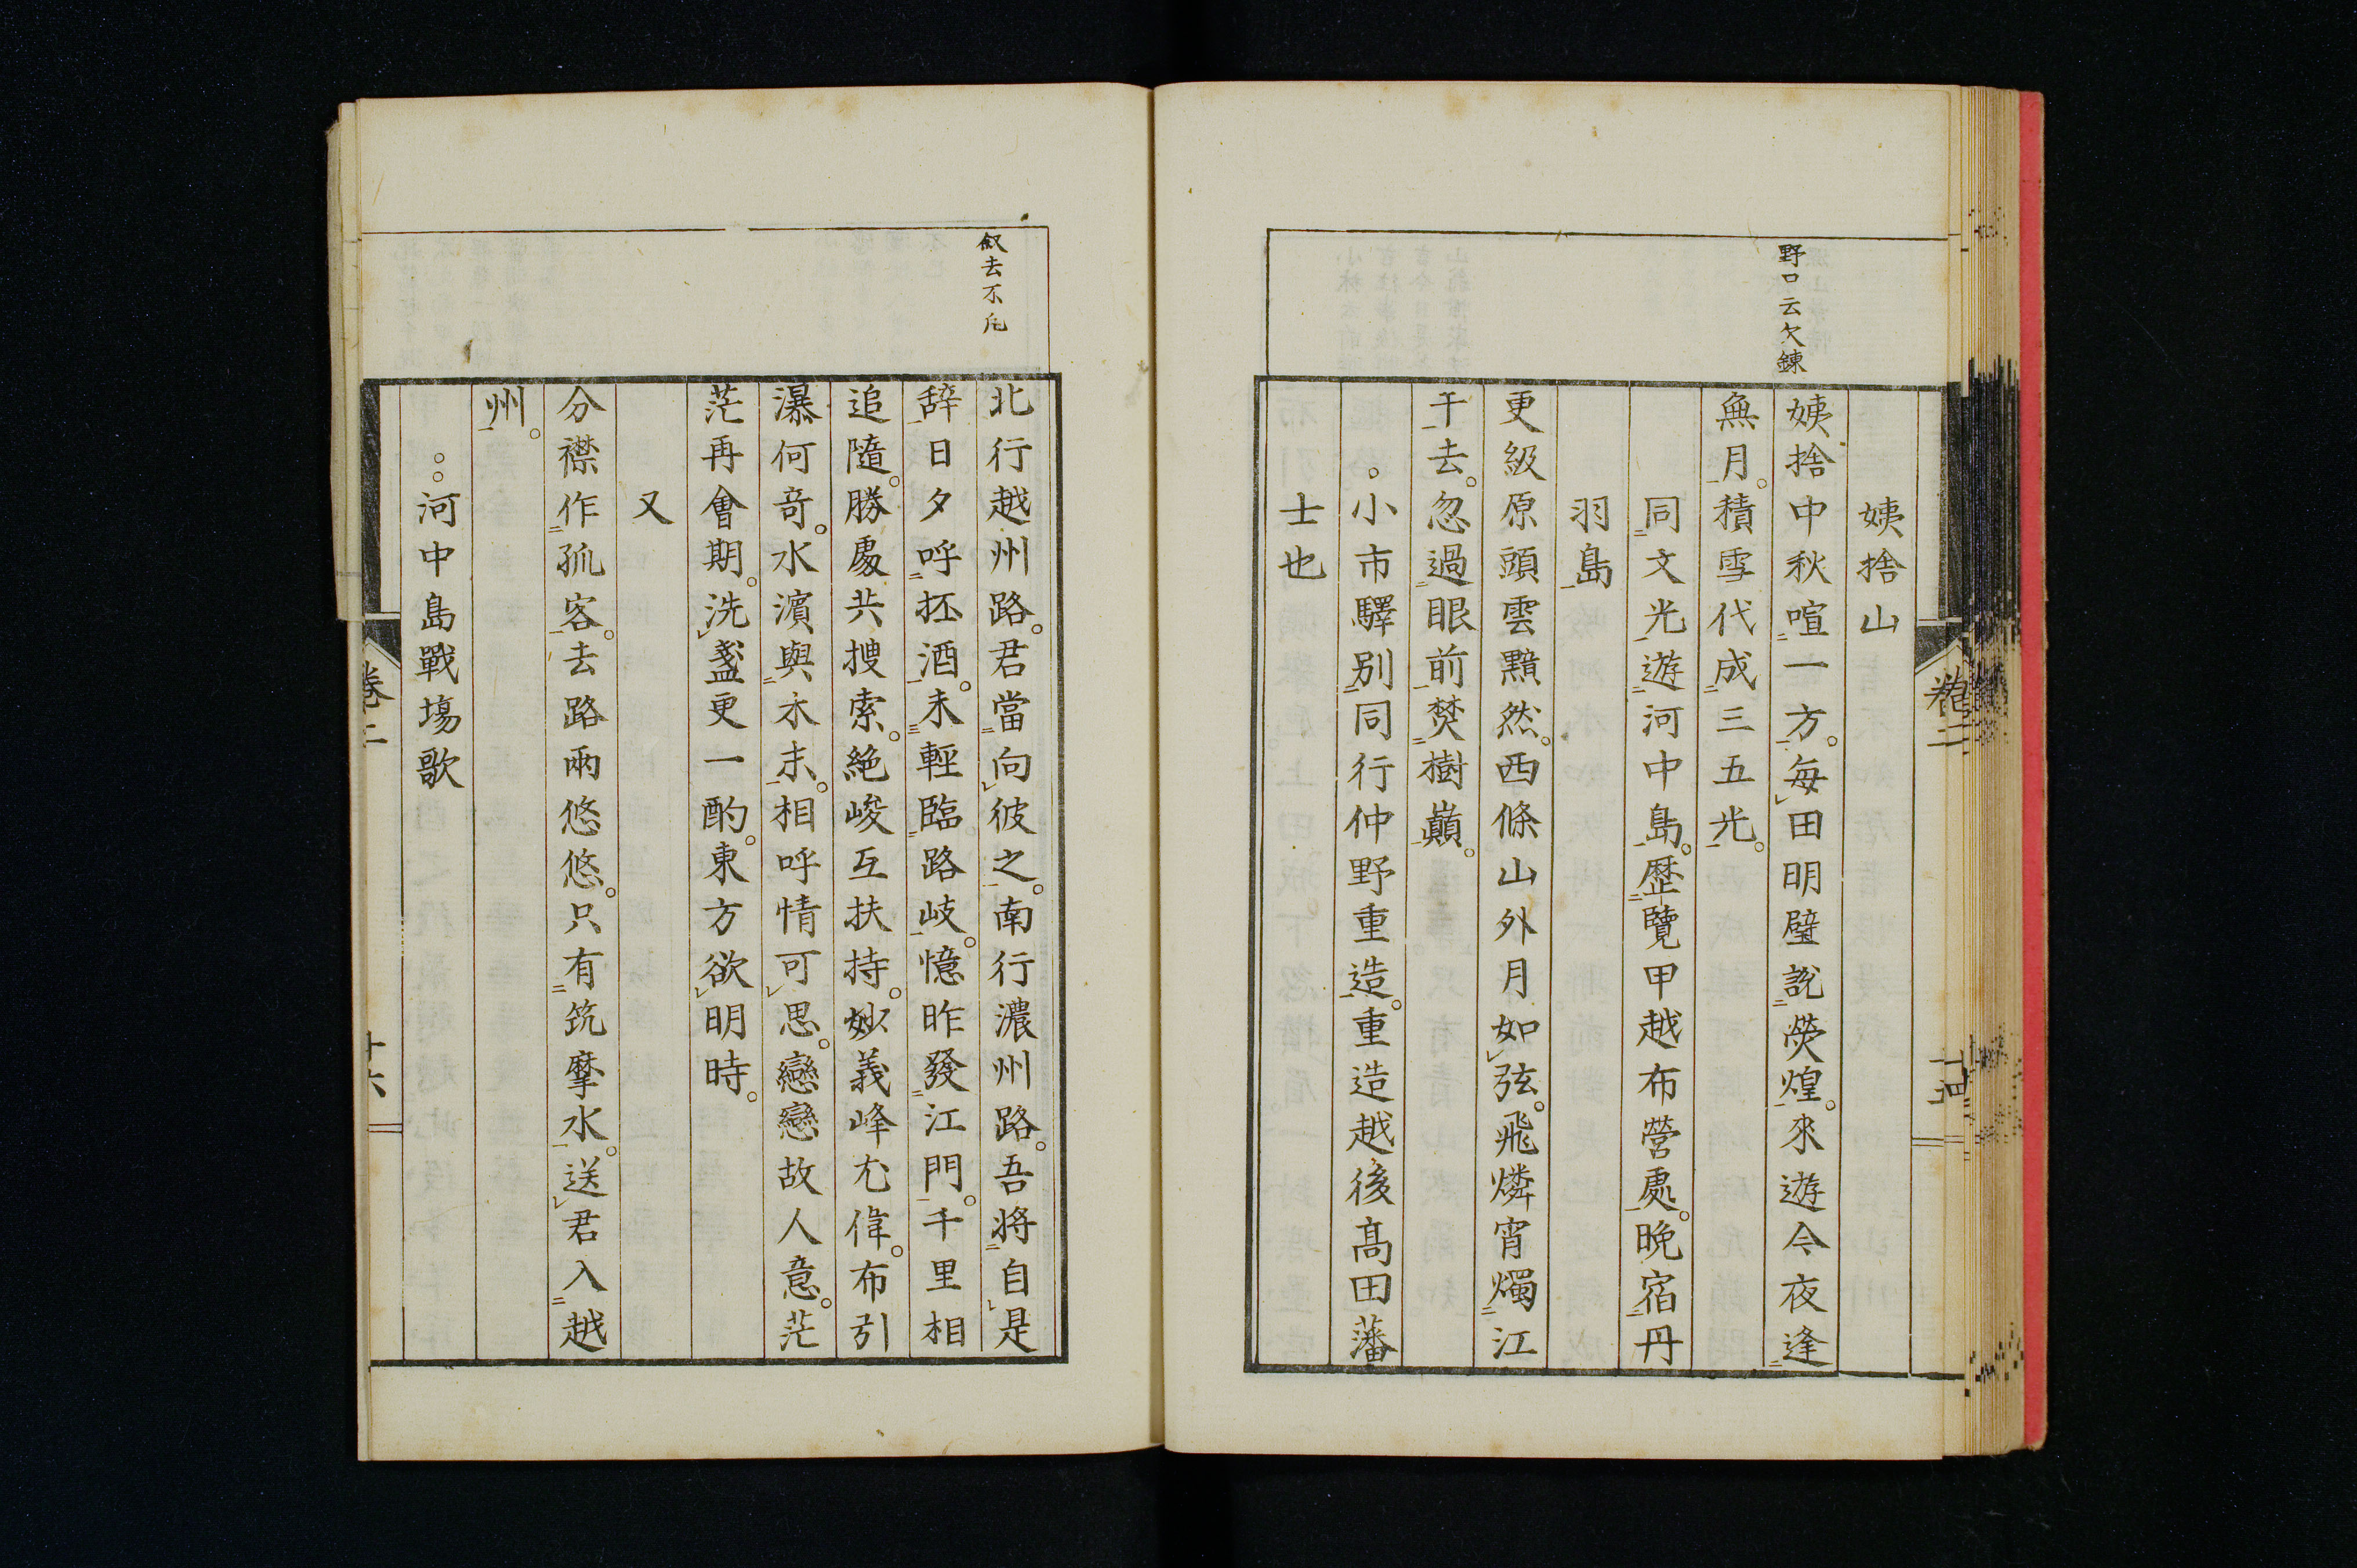 野口云欠錬
姨捨山
姨捨中秋喧一方。每田明璧說熒煌。來遊今夜逢
無月。積雪代成三五光。
同文光遊河中島。歷覽甲越布營處。晚宿丹
羽島
更級原頭雲黯然。西條山外月如弦。飛燐宵燭江
干去。忽過眼前焚樹巔。
小市驛別同行仲野重造。重造越後髙田藩
士也
卷二
敘去不凡
北行越州路。君當向彼之。南行濃州路。吾將自是
辭。日夕呼抔酒。未輕臨路岐。憶昨發江門。千里相
追隨。勝處共搜索。絕峻互扶持。妙義峰尤偉。布引
瀑何奇。水濱與木末。相呼情可思。戀戀故人意。茫
茫再會期。洗盞更一酌。東方欲明時。
又
分襟作孤客。去路兩悠悠。只有筑摩水。送君入越
州。
河中島戰場歌
卷二
十六